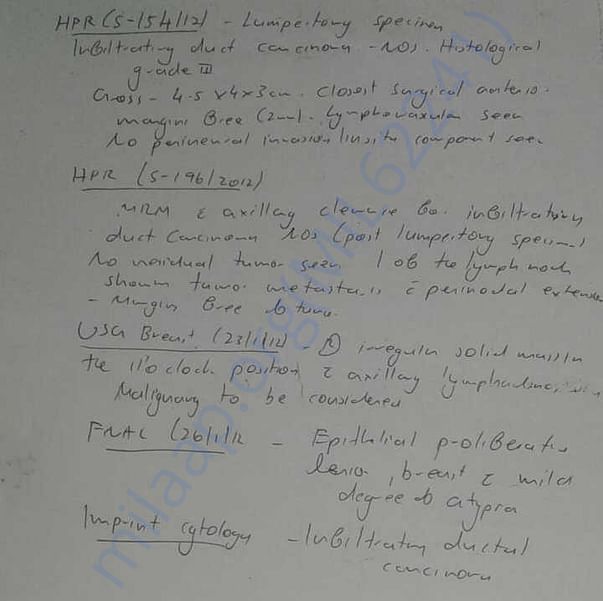 HPR (S-154/12) - Lumpectomy specimen
Infiltrating duct carcinoma - NOS. Histological
grade III
Gross - 4.5 x 4 x 3 cm. Closest surgical anterior
margins free (2mm). Lymphovascular seen
No perineural invasion/insitu component seen
HPR (S-196/2012)
MRM c axillary clearance for infiltrating
duct carcinoma NOS (post lumpectomy specimen)
No residual tumor seen 1 of the lymph node
shown tumor metastasis c perinodal extension
- Margin free of tumor
USG Breast (23/1/12) - irregular solid mass in
the 11 o'clock position c axillary
Malignancy to be considered
FNAC (26/1/12 - Epithelial proliferative
lesion, breast c mild
degree of atypia
Imprint cytology - Infiltrating ductal
carcinoma
milaap.org(MIL62241)